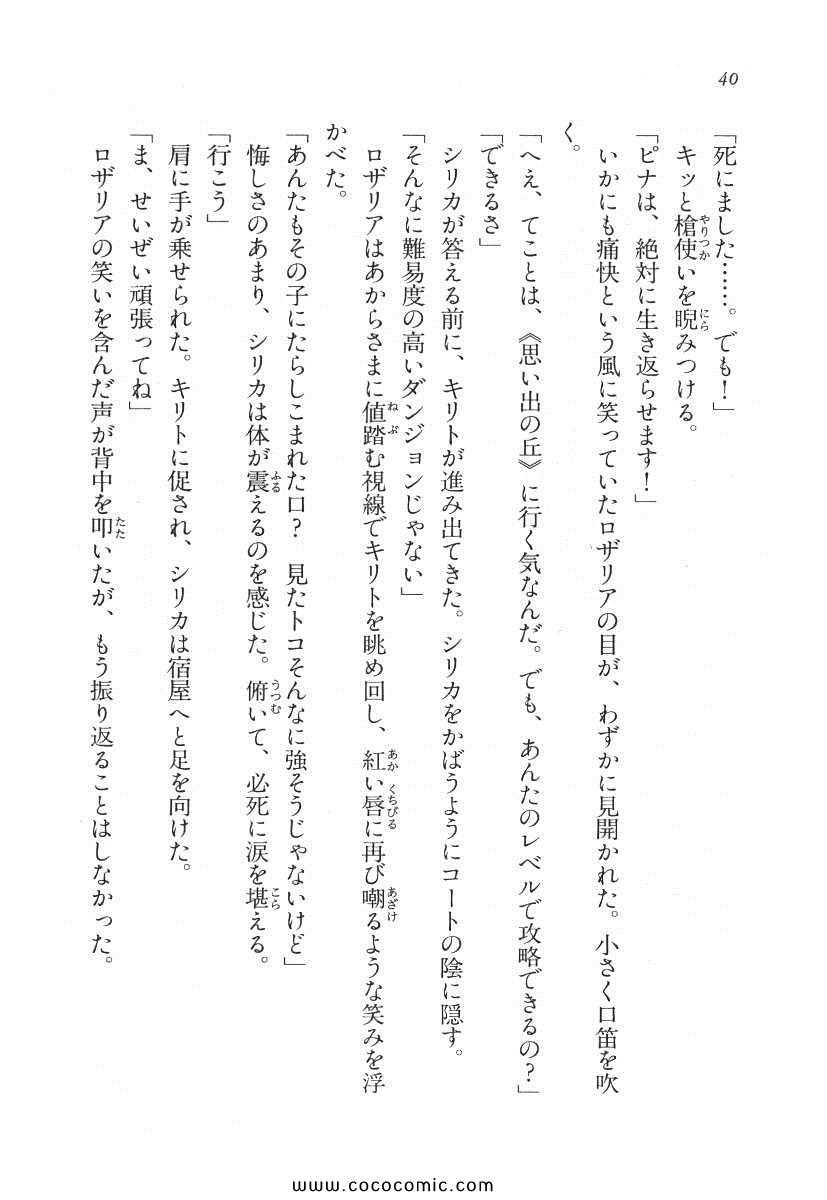 40
「死にました……。でも！」
キッと槍使いを睨みつける。
「ピナは、絶対に生き返らせます！」
いかにも痛快という風に笑っていたロザリアの目が、わずかに見開かれた。小さく口笛を吹
く。
「へえ、てことは、《思い出の丘》に行く気なんだ。でも、あんたのレベルで攻略できるの？」
「できるさ」
シリカが答える前に、キリトが進み出てきた。シリカをかばうようにコートの陰に隠す。
「そんなに難易度の高いダンジョンじゃない」
ロザリアはあからさまに値踏む視線でキリトを眺め回し、紅い唇に再び嘲るような笑みを浮
かべた。
「あんたもその子にたらしこまれた口？　見たトコそんなに強そうじゃないけど」
悔しさのあまり、シリカは体が震えるのを感じた。俯いて、必死に涙を堪える。
「行こう」
肩に手が乗せられた。キリトに促され、シリカは宿屋へと足を向けた。
「ま、せいぜい頑張ってね」
ロザリアの笑いを含んだ声が背中を叩いたが、もう振り返ることはしなかった。
www.cococomic.com/